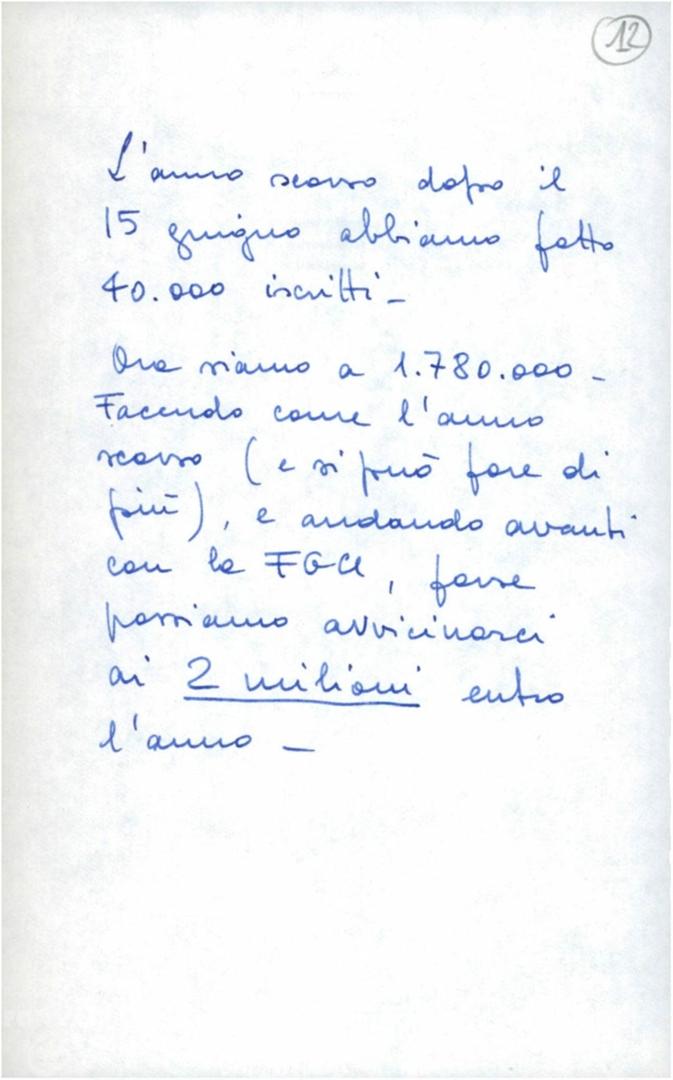 12
L'anno scorso dopo il
15 giugno abbiamo fatto
40.000 iscritti –
Ora siamo a 1.780.000 –
Facendo come l'anno
scorso (e si può fare di
più), e andando avanti
con la FGCI, forse
possiamo avvicinarci
ai 2 milioni entro
l'anno –